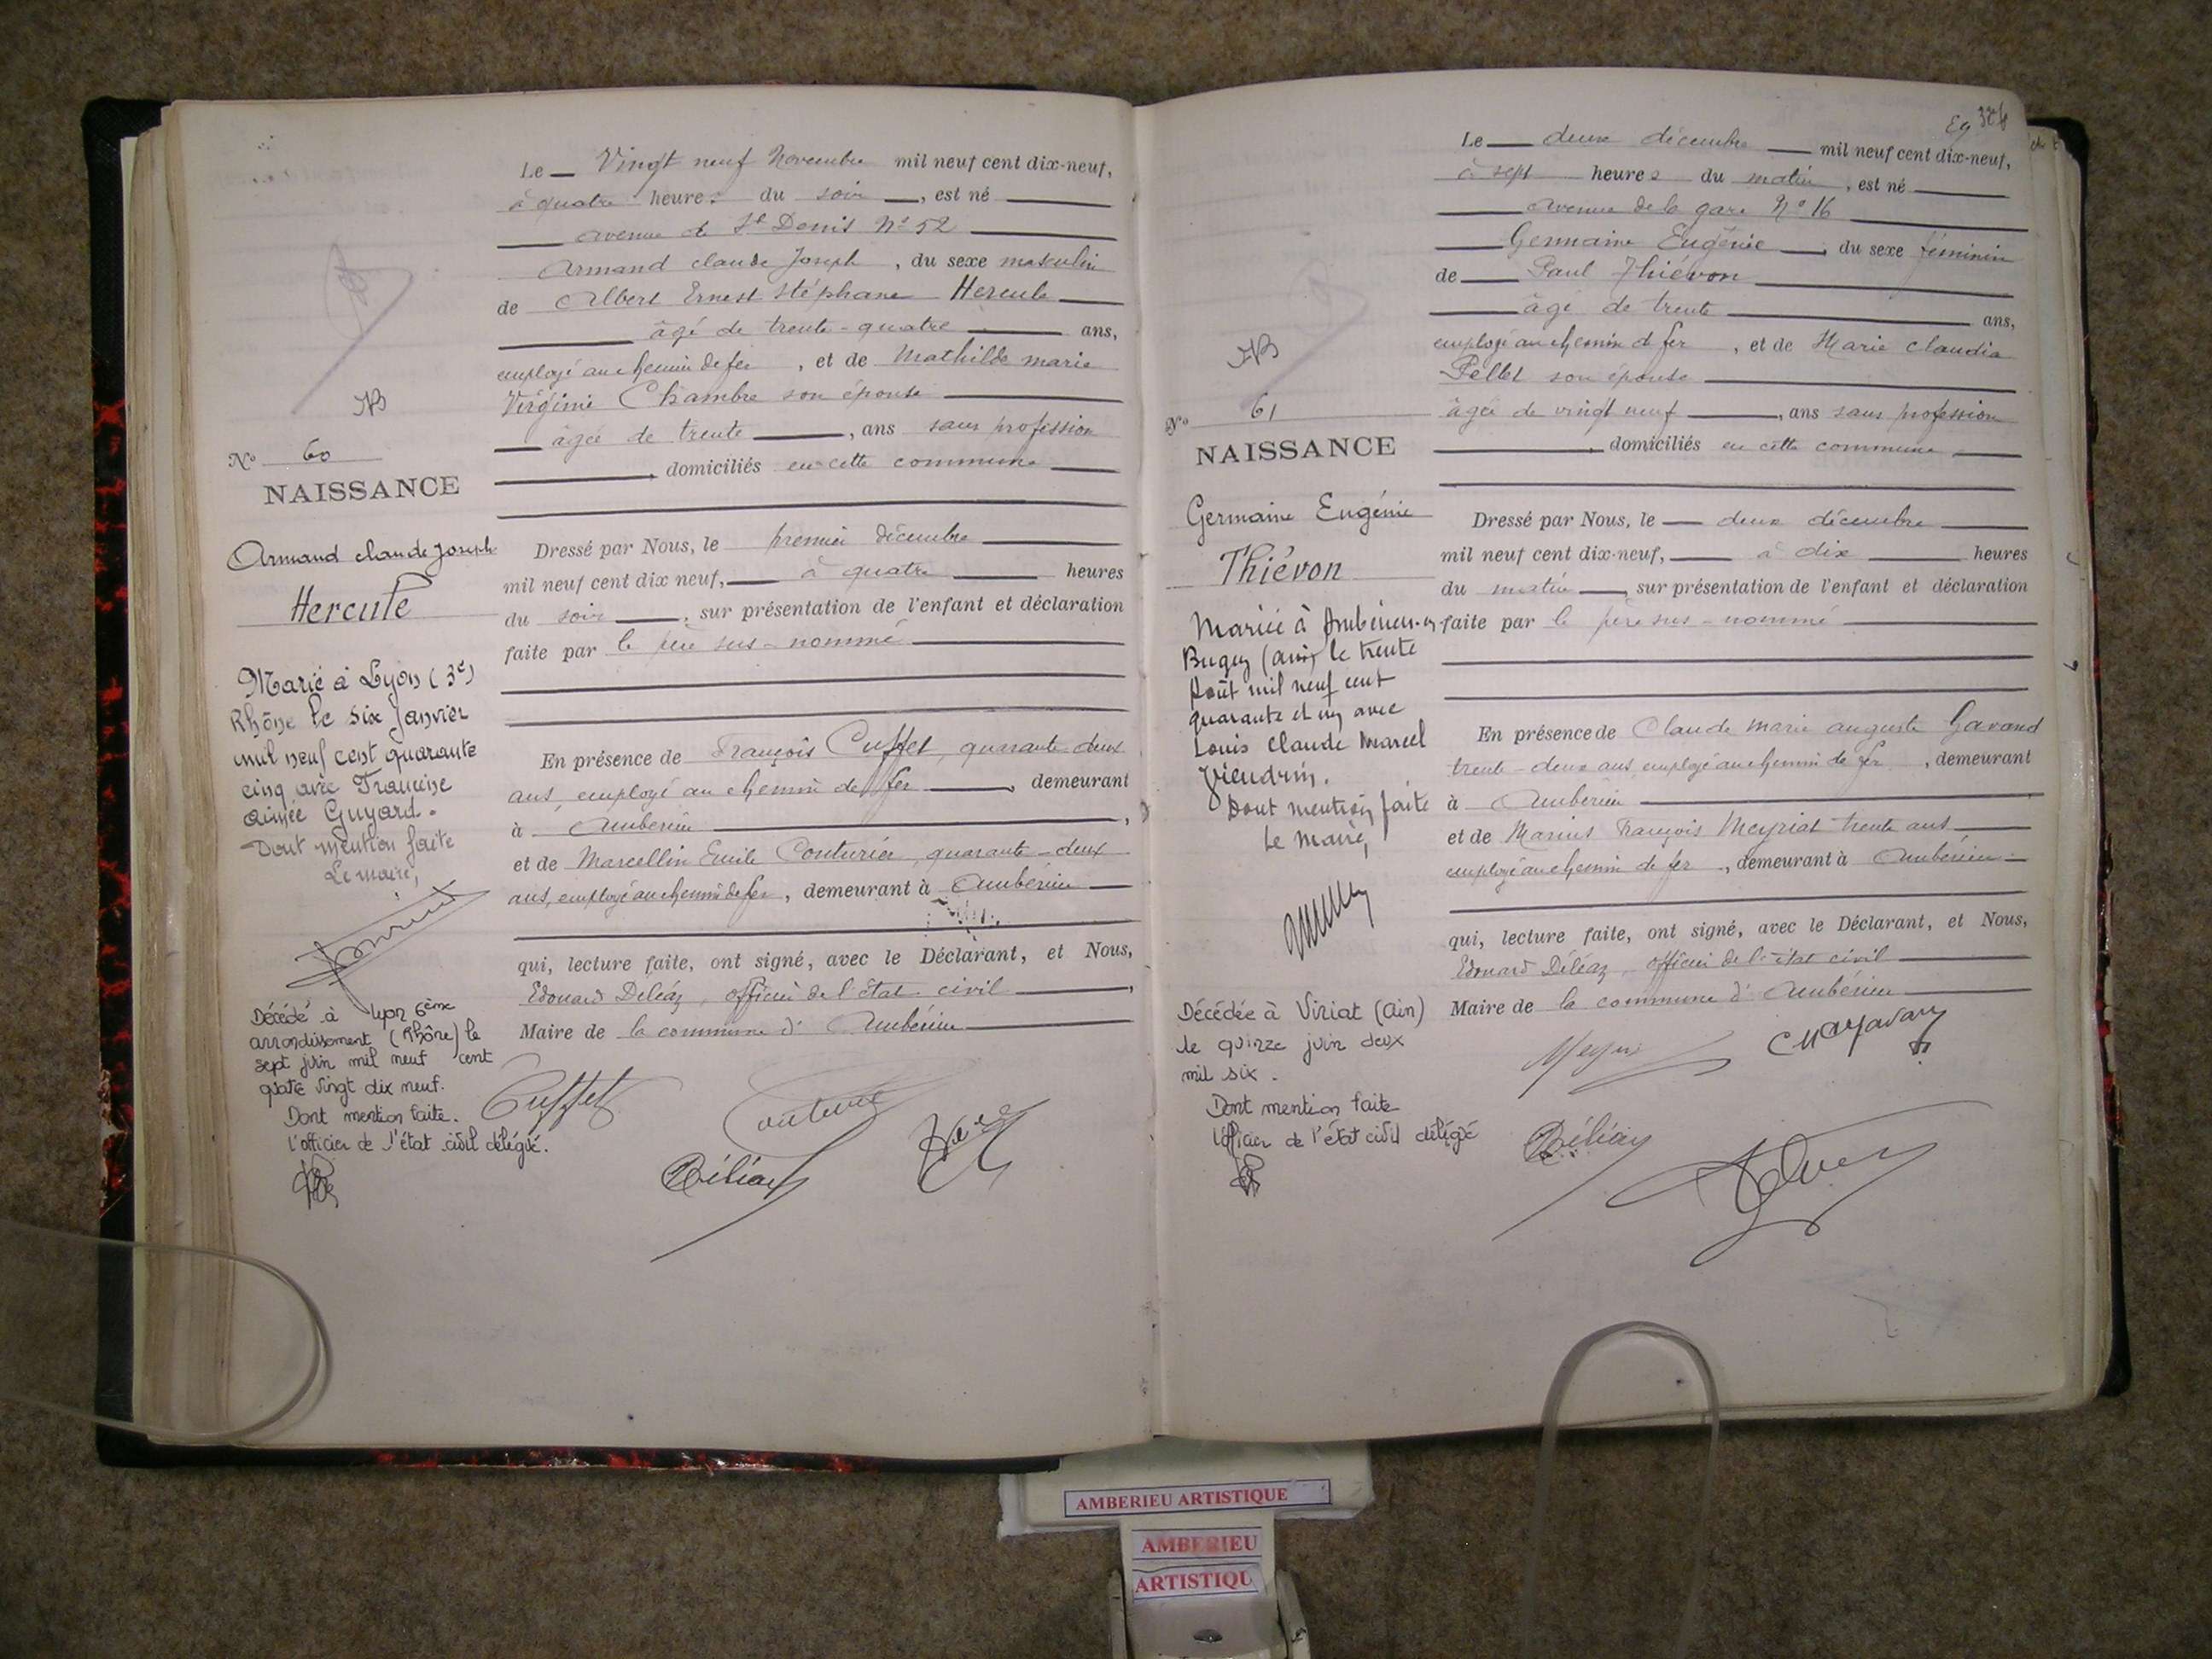 Le Vingt neuf Novembre mil neuf cent dix-neuf,
à quatre heures du soir, est né
avenue de St Denis N° 52
Armand claude Joseph, du sexe masculin
de Albert Ernest Stéphane Hercule
âgé de trente-quatre ans,
employé au chemin de fer, et de Mathilde marie
Virginie Chambre son épouse
âgée de trente, ans sans profession
domiciliés en cette commune
N° 60
NAISSANCE
Armand claude Joseph
Hercule
Dressé par Nous, le premier décembre
mil neuf cent dix neuf, à quatre heures
du soir, sur présentation de l'enfant et déclaration
faite par le père sus-nommé
Marié à Lyon (3e)
Rhône le six Janvier
mil neuf cent quarante
cinq avec Francine
aimée Guyard.
Dont mention faite
Le maire,
En présence de François Cuffet, quarante deux
ans, employé au chemin de fer, demeurant
à Ambérieu,
et de Marcellin Emile Couturier, quarante-deux
ans, employé au chemin de fer, demeurant à Ambérieu
qui, lecture faite, ont signé, avec le Déclarant, et Nous,
Edouard Deléaz, officier de l'état civil,
Maire de la commune d'Ambérieu
Décédé à Lyon 6ème
arrondissement (Rhône) le
sept juin mil neuf cent
quatre vingt dix neuf.
Dont mention faite.
l'officier de l'état civil délégué.
Cuffet
Le deux décembre mil neuf cent dix-neuf,
à sept heures du matin, est né
avenue de la gare N° 16
Germaine Eugénie, du sexe féminin
de Paul Thiévon
âgé de trente ans,
employé au chemin de fer, et de Marie Claudia
Pellet son épouse
âgée de vingt neuf, ans sans profession
domiciliés en cette commune
N° 61
NAISSANCE
Germaine Eugénie
Thiévon
Dressé par Nous, le deux décembre
mil neuf cent dix-neuf, à dix heures
du matin, sur présentation de l'enfant et déclaration
faite par le père sus-nommé
Mariée à Ambérieu-en-
Bugey (ain) le trente
Août mil neuf cent
quarante et un avec
Louis Claude Marcel
Vieudrin.
Dont mention faite
Le Maire,
En présence de Claude marie auguste Gavand
trente-deux ans, employé au chemin de fer, demeurant
à Ambérieu
et de Marius François Meyriat trente ans
employé au chemin de fer, demeurant à Ambérieu
qui, lecture faite, ont signé, avec le Déclarant, et Nous,
Edouard Deléaz, officier de l'état civil
Maire de la commune d'Ambérieu
Décédée à Viriat (Ain)
le quinze juin deux
mil six.
Dont mention faite
l'officier de l'état civil délégué
AMBERIEU ARTISTIQUE
AMBERIEU
ARTISTIQU